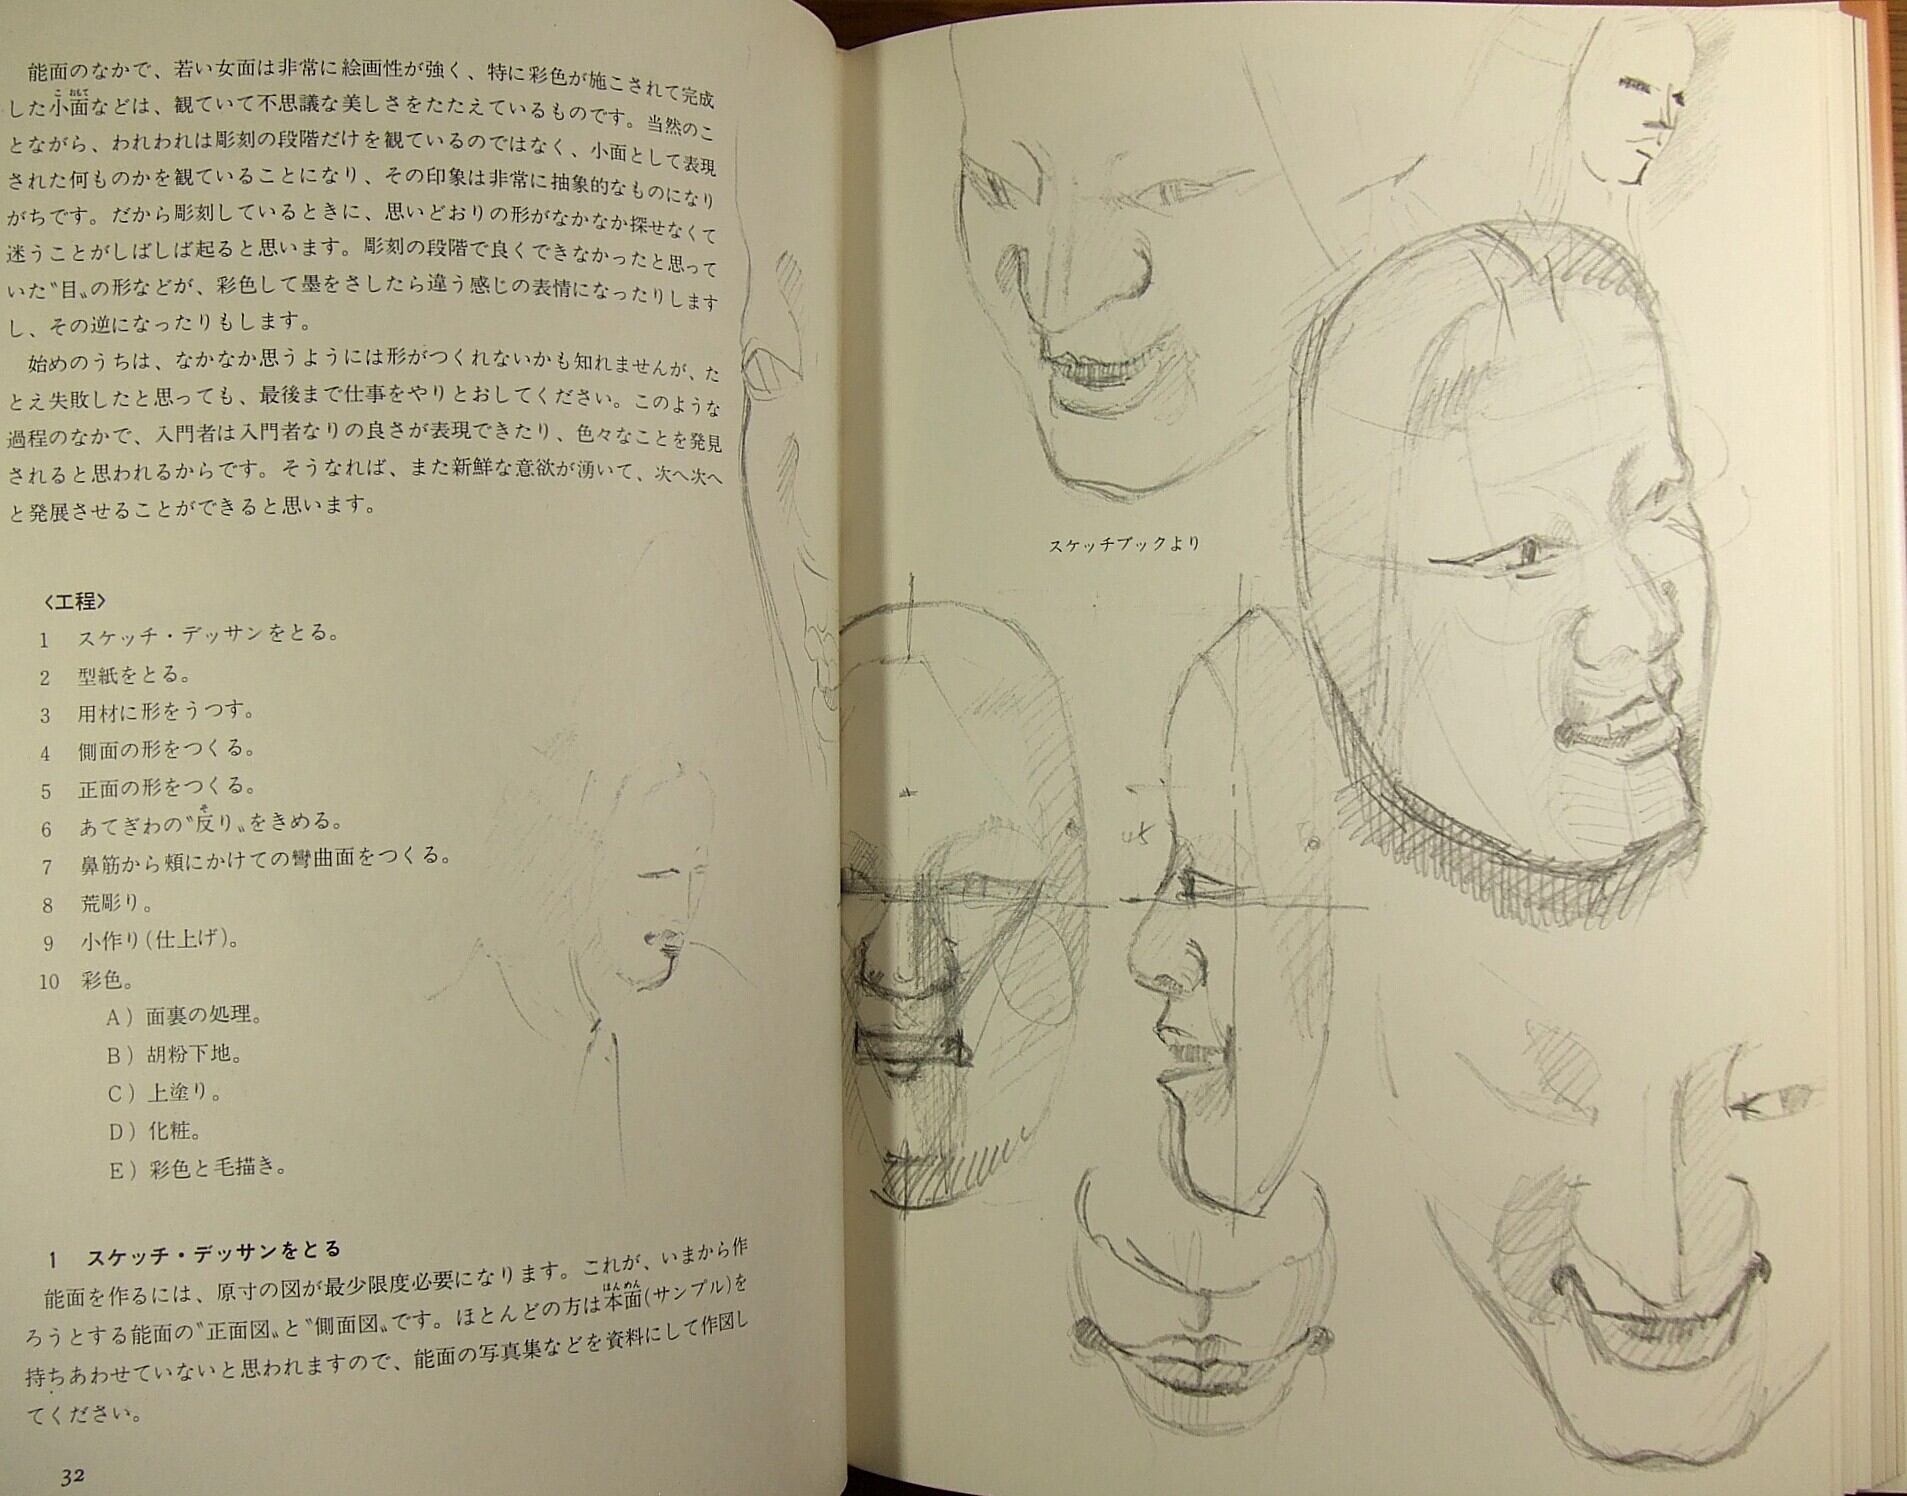 能面のなかで、若い女面は非常に絵画性が強く、特に彩色が施こされて完成
した小面などは、観ていて不思議な美しさをたたえているものです。当然のこ
とながら、われわれは彫刻の段階だけを観ているのではなく、小面として表現
された何ものかを観ていることになり、その印象は非常に抽象的なものになり
がちです。だから彫刻しているときに、思いどおりの形がなかなか探せなくて
迷うことがしばしば起ると思います。彫刻の段階で良くできなかったと思って
いた〝目〟の形などが、彩色して墨をさしたら違う感じの表情になったりします
し、その逆になったりもします。
始めのうちは、なかなか思うようには形がつくれないかも知れませんが、た
とえ失敗したと思っても、最後まで仕事をやりとおしてください。このような
過程のなかで、入門者は入門者なりの良さが表現できたり、色々なことを発見
されると思われるからです。そうなれば、また新鮮な意欲が湧いて、次へ次へ
と発展させることができると思います。
〈工程〉
1 スケッチ・デッサンをとる。
2 型紙をとる。
3 用材に形をうつす。
4 側面の形をつくる。
5 正面の形をつくる。
6 あてぎわの〝反り〟をきめる。
7 鼻筋から頬にかけての彎曲面をつくる。
8 荒彫り。
9 小作り(仕上げ)。
10 彩色。
A) 面裏の処理。
B) 胡粉下地。
C) 上塗り。
D) 化粧。
E) 彩色と毛描き。
1 スケッチ・デッサンをとる
能面を作るには、原寸の図が最少限度必要になります。これが、いまから作
ろうとする能面の〝正面図〟と〝側面図〟です。ほとんどの方は本面(サンプル)を
持ちあわせていないと思われますので、能面の写真集などを資料にして作図し
てください。
32
スケッチブックより